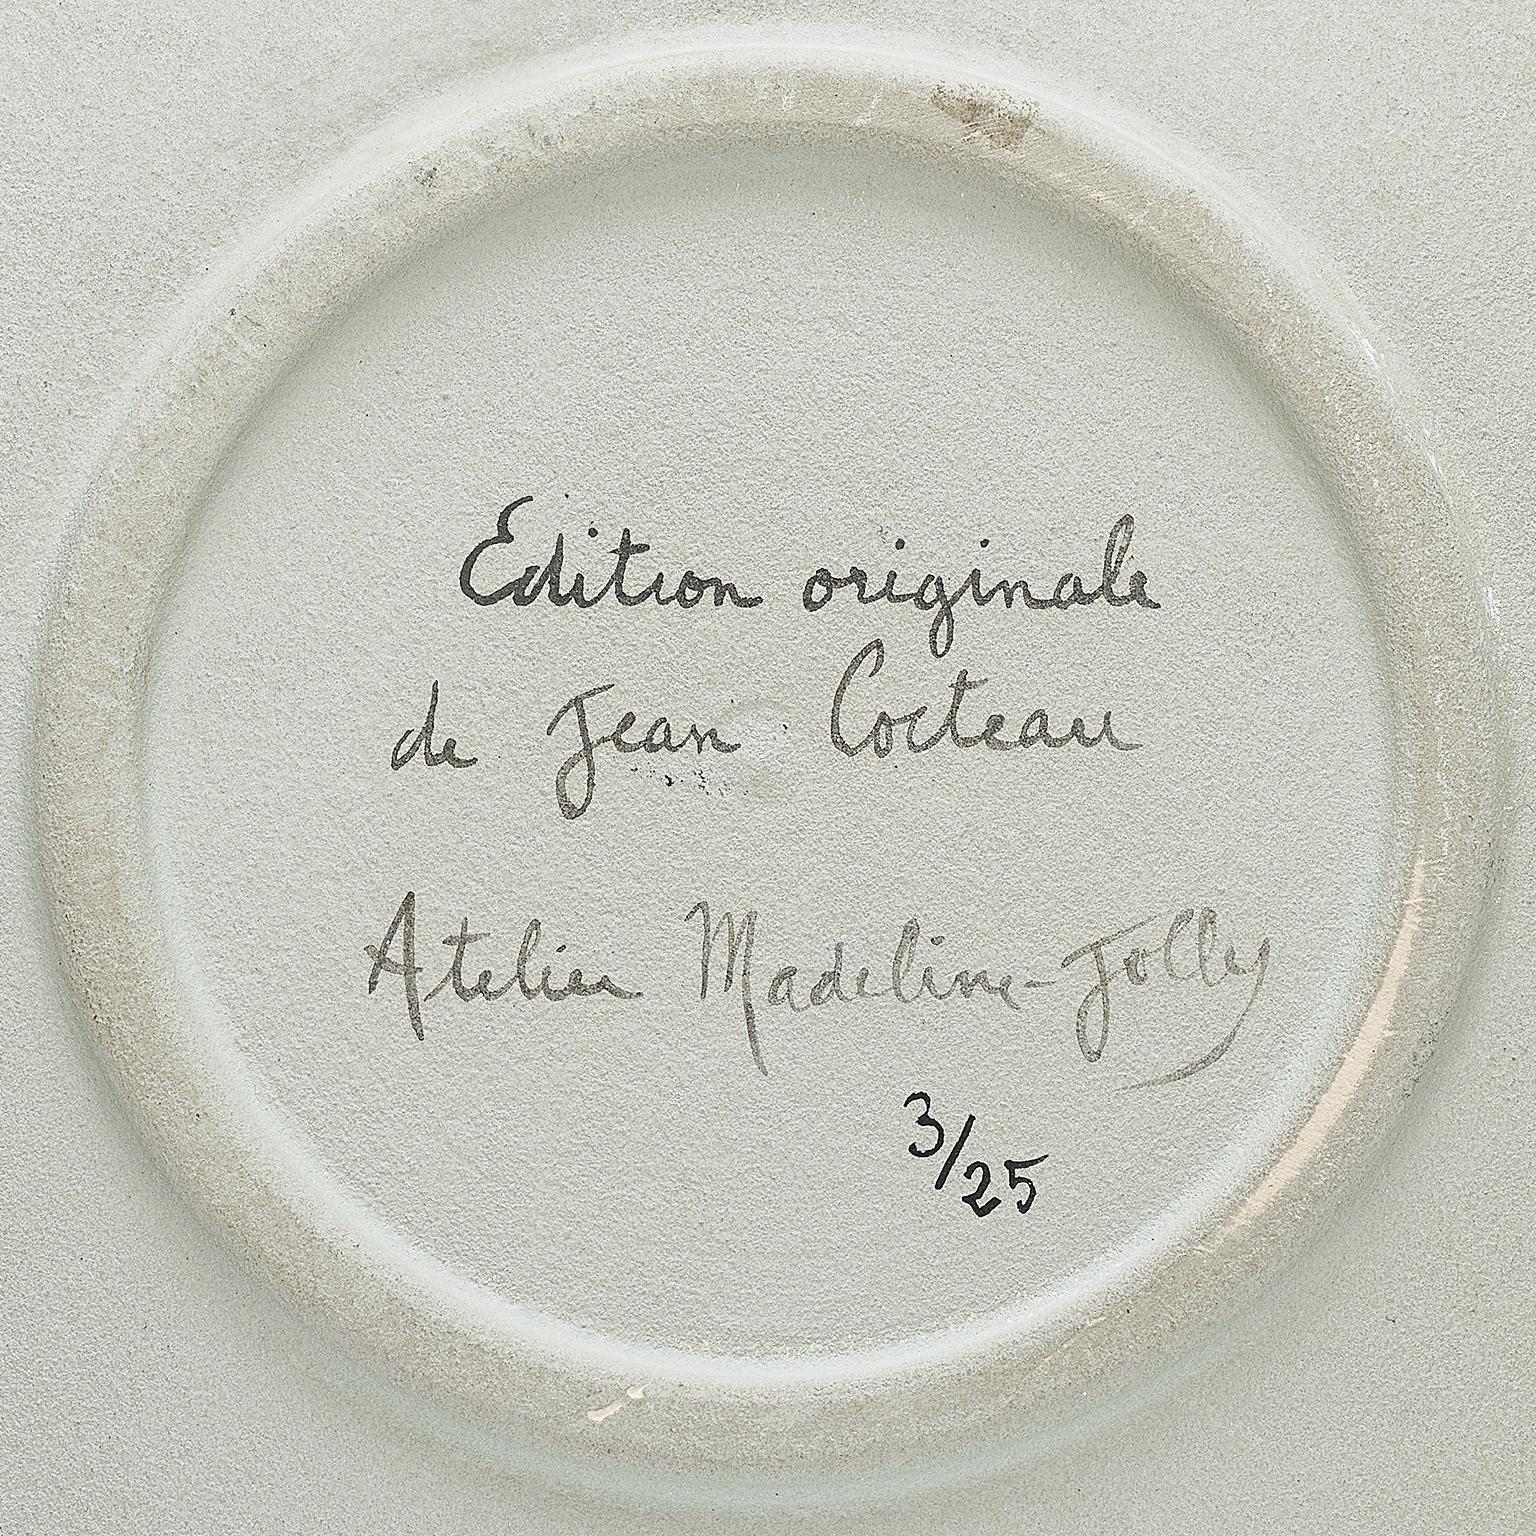 Edition originale
de Jean Cocteau
Atelier Madeline-Jolly
3/25